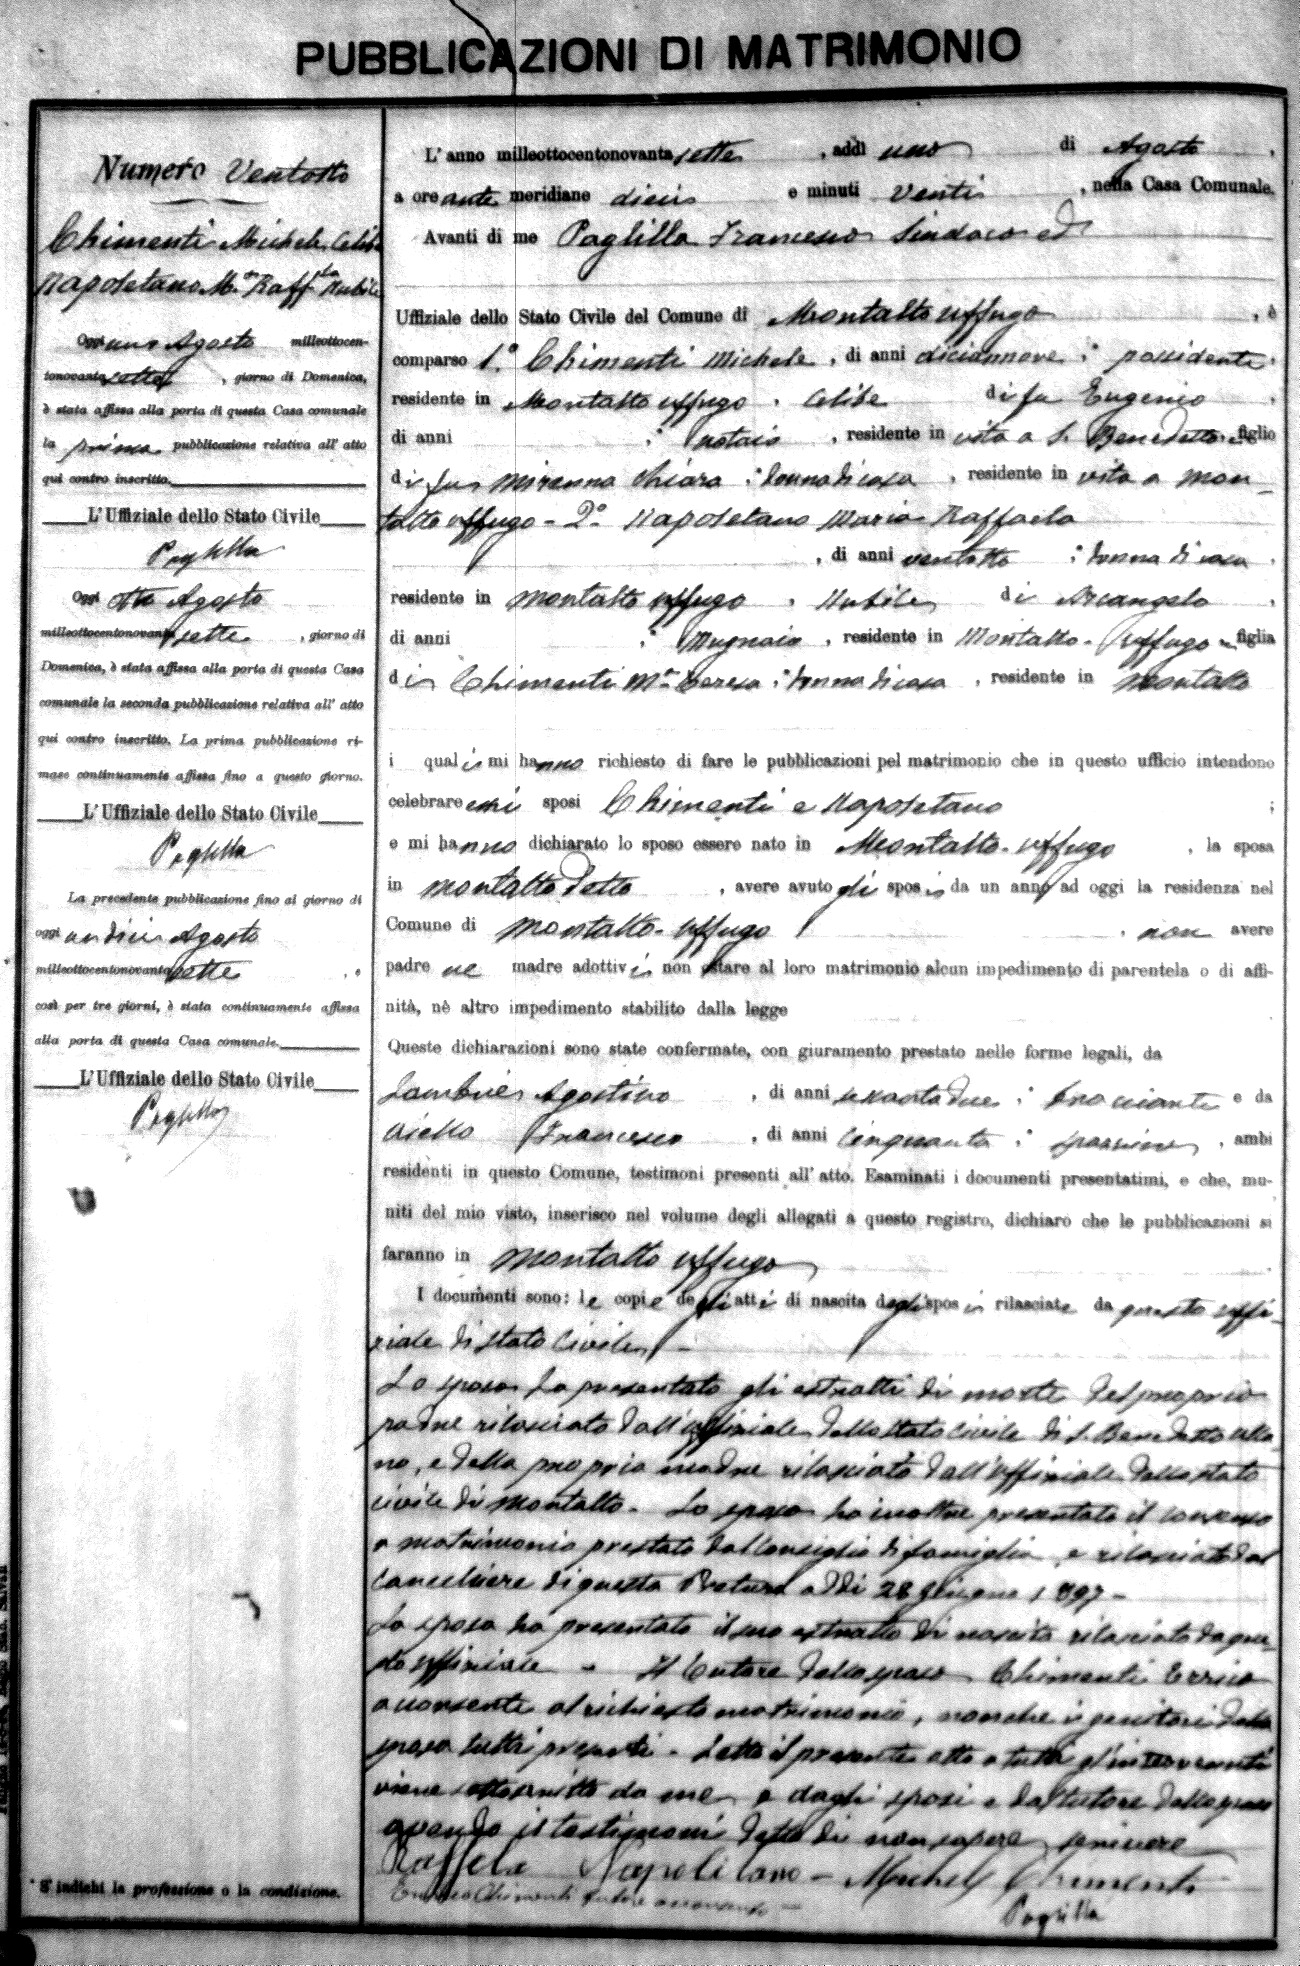 PUBBLICAZIONI DI MATRIMONIO
Numero Ventotto
Chimenti Michele Celibe
Napoletano M.a Raff.la Nubile
Oggi uno Agosto milleottocen-
tonovantasette, giorno di Domenica,
è stata affissa alla porta di questa Casa comunale
la prima pubblicazione relativa all' atto
qui contro inscritto.
L'Uffiziale dello Stato Civile
Paglilla
Oggi otto Agosto
milleottocentonovantasette, giorno di
Domenica, è stata affissa alla porta di questa Casa
comunale la seconda pubblicazione relativa all' atto
qui contro inscritto. La prima pubblicazione ri-
mase continuamente affissa fino a questo giorno.
L'Uffiziale dello Stato Civile
Paglilla
La precedente pubblicazione fino al giorno di
oggi undici Agosto
milleottocentonovantasette, e
così per tre giorni, è stata continuamente affissa
alla porta di questa Casa comunale.
L'Uffiziale dello Stato Civile
Paglilla
* S' indichi la professione o la condizione.
L' anno milleottocentonovantasette, addì uno di Agosto,
a ore ante meridiane dieci e minuti venti, nella Casa Comunale.
Avanti di me Paglilla Francesco Sindaco ed
Uffiziale dello Stato Civile del Comune di Montalto Uffugo, è
comparso 1.° Chimenti Michele, di anni diciannove; possidente,
residente in Montalto Uffugo, Celibe di fu Eugenio,
di anni ; notaio, residente in vita a S. Benedetto, figlio
di fu Chiara; donna di casa, residente in vita a Mon-
talto Uffugo - 2.° Napoletano Maria Raffaela
, di anni ventotto; donna di casa,
residente in Montalto Uffugo, Nubile di Arcangelo,
di anni ; Mugnaio, residente in Montalto-Uffugo, figlia
di Chimenti M.a Teresa; donna di casa, residente in Montalto
i quali mi hanno richiesto di fare le pubblicazioni pel matrimonio che in questo ufficio intendono
celebrare essi sposi Chimenti e Napoletano;
e mi hanno dichiarato lo sposo essere nato in Montalto-Uffugo, la sposa
in Montalto detto, avere avuto gli sposi da un anno ad oggi la residenza nel
Comune di Montalto-Uffugo, non avere
padre ne madre adottivi non ostare al loro matrimonio alcun impedimento di parentela o di affi-
nità, nè altro impedimento stabilito dalla legge
Queste dichiarazioni sono state confermate, con giuramento prestato nelle forme legali, da
Agostino, di anni sessantadue; bracciante e da
Aiello Francesco, di anni cinquanta; , ambi
residenti in questo Comune, testimoni presenti all' atto. Esaminati i documenti presentatimi, e che, mu-
niti del mio visto, inserisco nel volume degli allegati a questo registro, dichiaro che le pubblicazioni si
faranno in Montalto Uffugo
I documenti sono: le copie degli atti di nascita degli sposi rilasciate da questo uffi-
ziale di stato Civile.
Lo sposo ha presentato gli estratti di morte del proprio
padre rilasciato dall'uffiziale dello stato civile di S. Benedetto Ulla-
no, e della propria madre rilasciato dall'uffiziale dello stato
civile di Montalto. Lo sposo ha inoltre presentato il consenso
a matrimonio prestato dal Consiglio di famiglia e rilasciato dal
Cancelliere di questa Pretura addì 28 Giugno 1897 -
La sposa ha presentato il suo estratto di nascita rilasciato da que-
sto uffiziale - Il tutore dello sposo Chimenti Errico
acconsente al richiesto matrimonio, nonchè i genitori della
sposa tutti presenti. Letto il presente atto a tutti gl'intervenuti
viene sottoscritto da me e dagli sposi e dal tutore dello sposo
avendo i testimoni detto di non sapere scrivere
Raffela Napolitano - Michele Chimenti
Errico Chimenti tutore
Paglilla